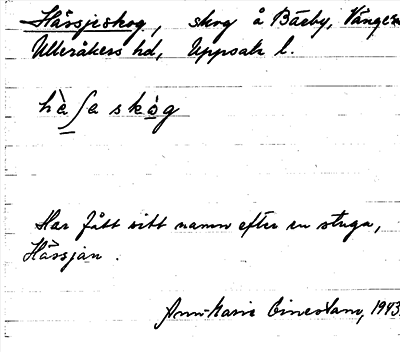 Hässjeskog, skog å Bärby, Vänge sn
Ulleråkers hd, Uppsala l.
hὰ ʃa skò̀g
Har fått sitt namn efter en stuga,
Hässjan.
Ann-Marie 1943